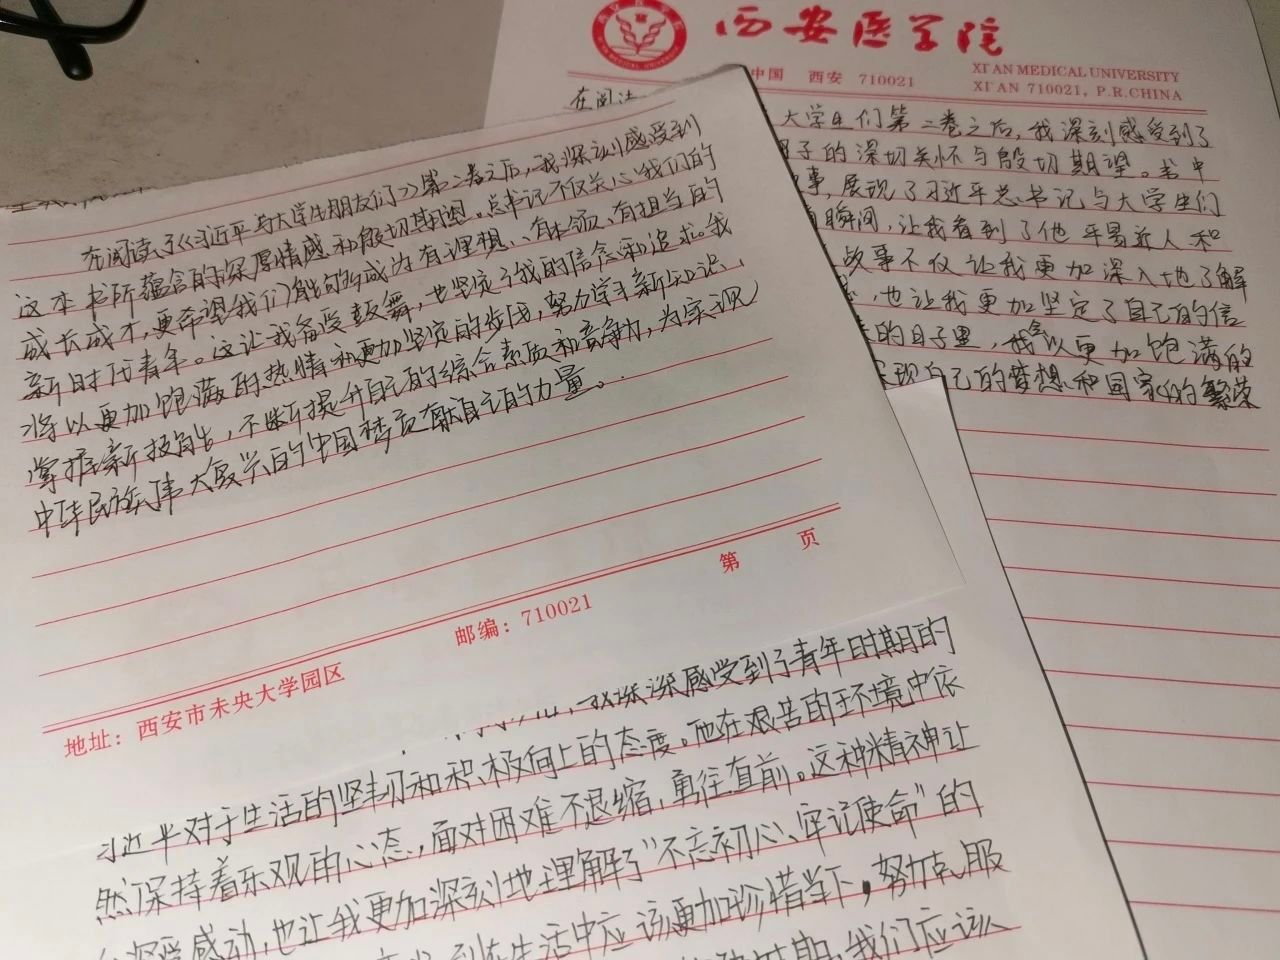 西安医学院
中国 西安 710021
XI'AN MEDICAL UNIVERSITY
XI'AN 710021, P.R.CHINA
在阅读
大学生们第二卷之后,我深刻感受到了
子的深切关怀与殷切期望。书中
事,展现了习近平总书记与大学生们
瞬间,让我看到了他平易近人和
故事不仅让我更加深入地了解
,也让我更加坚定了自己的信
的日子里,我会以更加饱满的
实现自己的梦想和国家的繁荣
在阅读了《习近平与大学生朋友们》第二卷之后,我深刻感受到
这本书所蕴含的深厚情感和殷切期望。总书记不仅关心我们的
成长成才,更希望我们能够成为有理想、有本领、有担当的
新时代青年。这让我备受鼓舞,也坚定了我的信念和追求。我
将以更加饱满的热情和更加坚定的步伐,努力学习新知识、
掌握新技能,不断提升自己的综合素质和竞争力,为实现
中华民族伟大复兴的中国梦贡献自己的力量。
第 页
邮编:710021
地址:西安市未央大学园区
,我深深感受到了青年时期的
习近平对于生活的坚韧和积极向上的态度。他在艰苦的环境中依
然保持着乐观的心态,面对困难不退缩,勇往直前。这种精神让
深受感动,也让我更加深刻地理解了“不忘初心、牢记使命”的
到在生活中应该更加珍惜当下,努力克服
我们应该